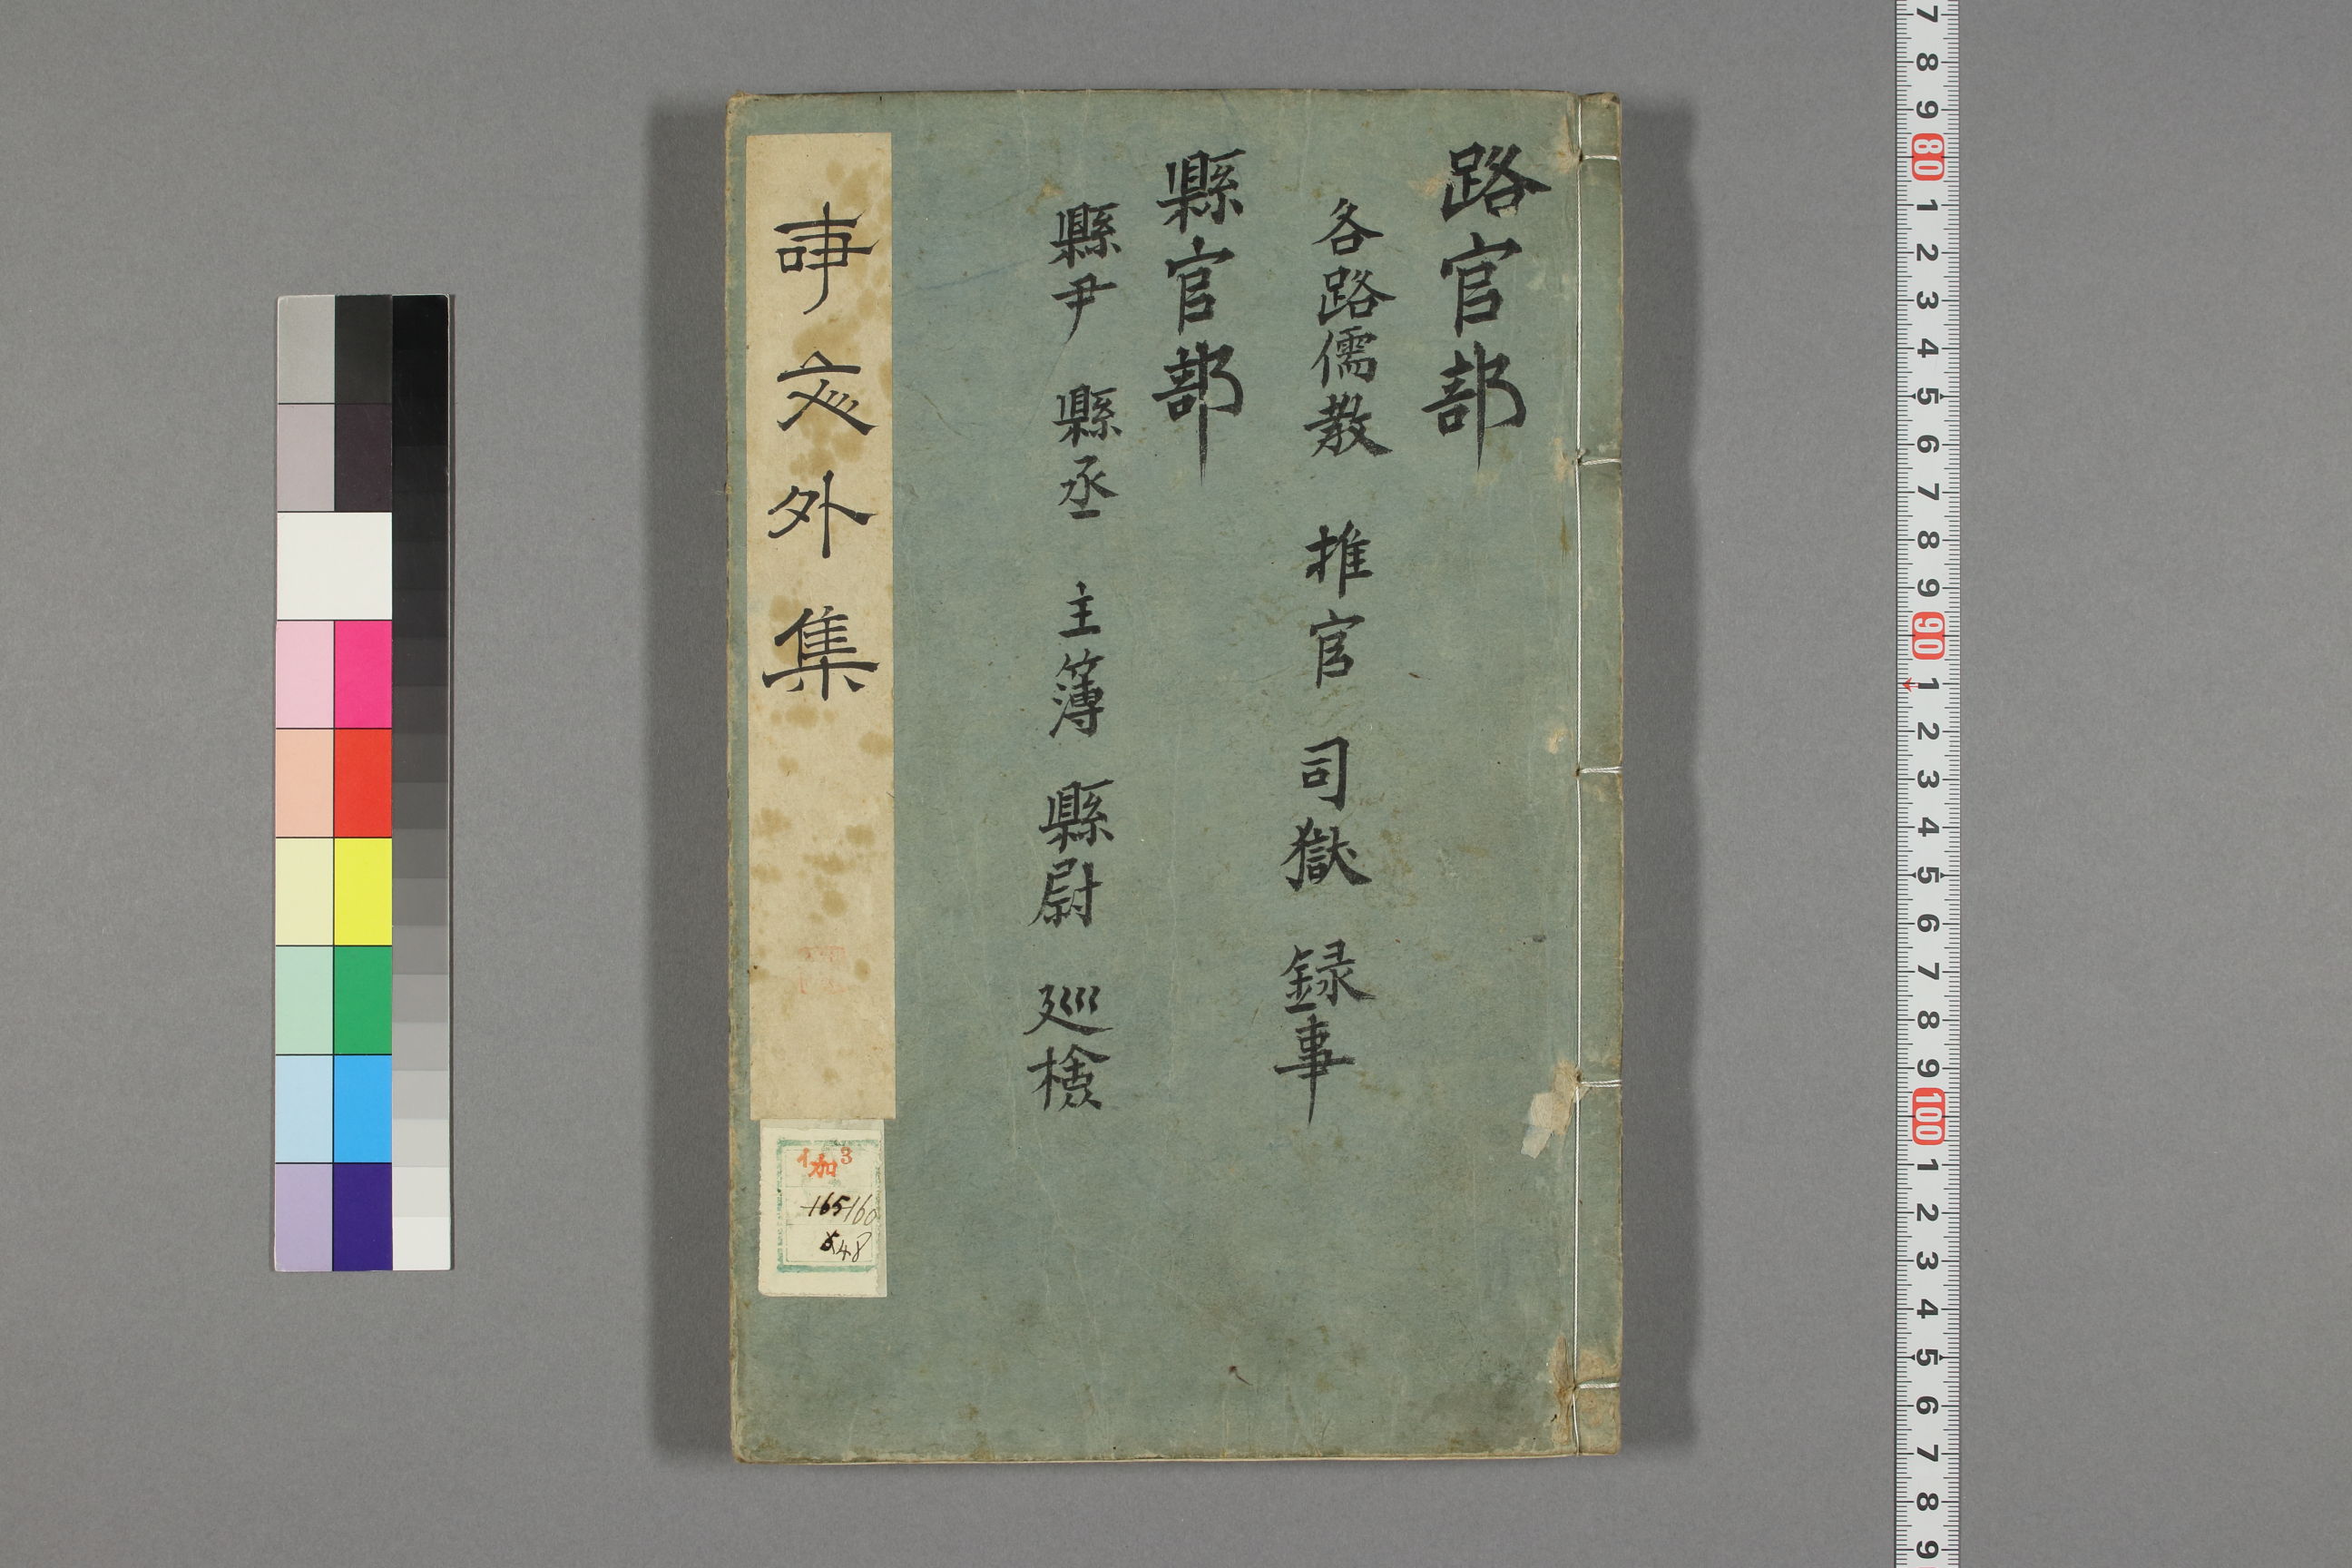 路官部
各路儒教 推官 司獄 録事
縣官部
縣尹 縣丞 主簿 縣尉 巡檢
事文外集
3
165 160
5 48
7 8 9 80 1 2 3 4 5 6 7 8 9 90 1 2 3 4 5 6 7 8 9 100 1 2 3 4 5 6 7 8 9